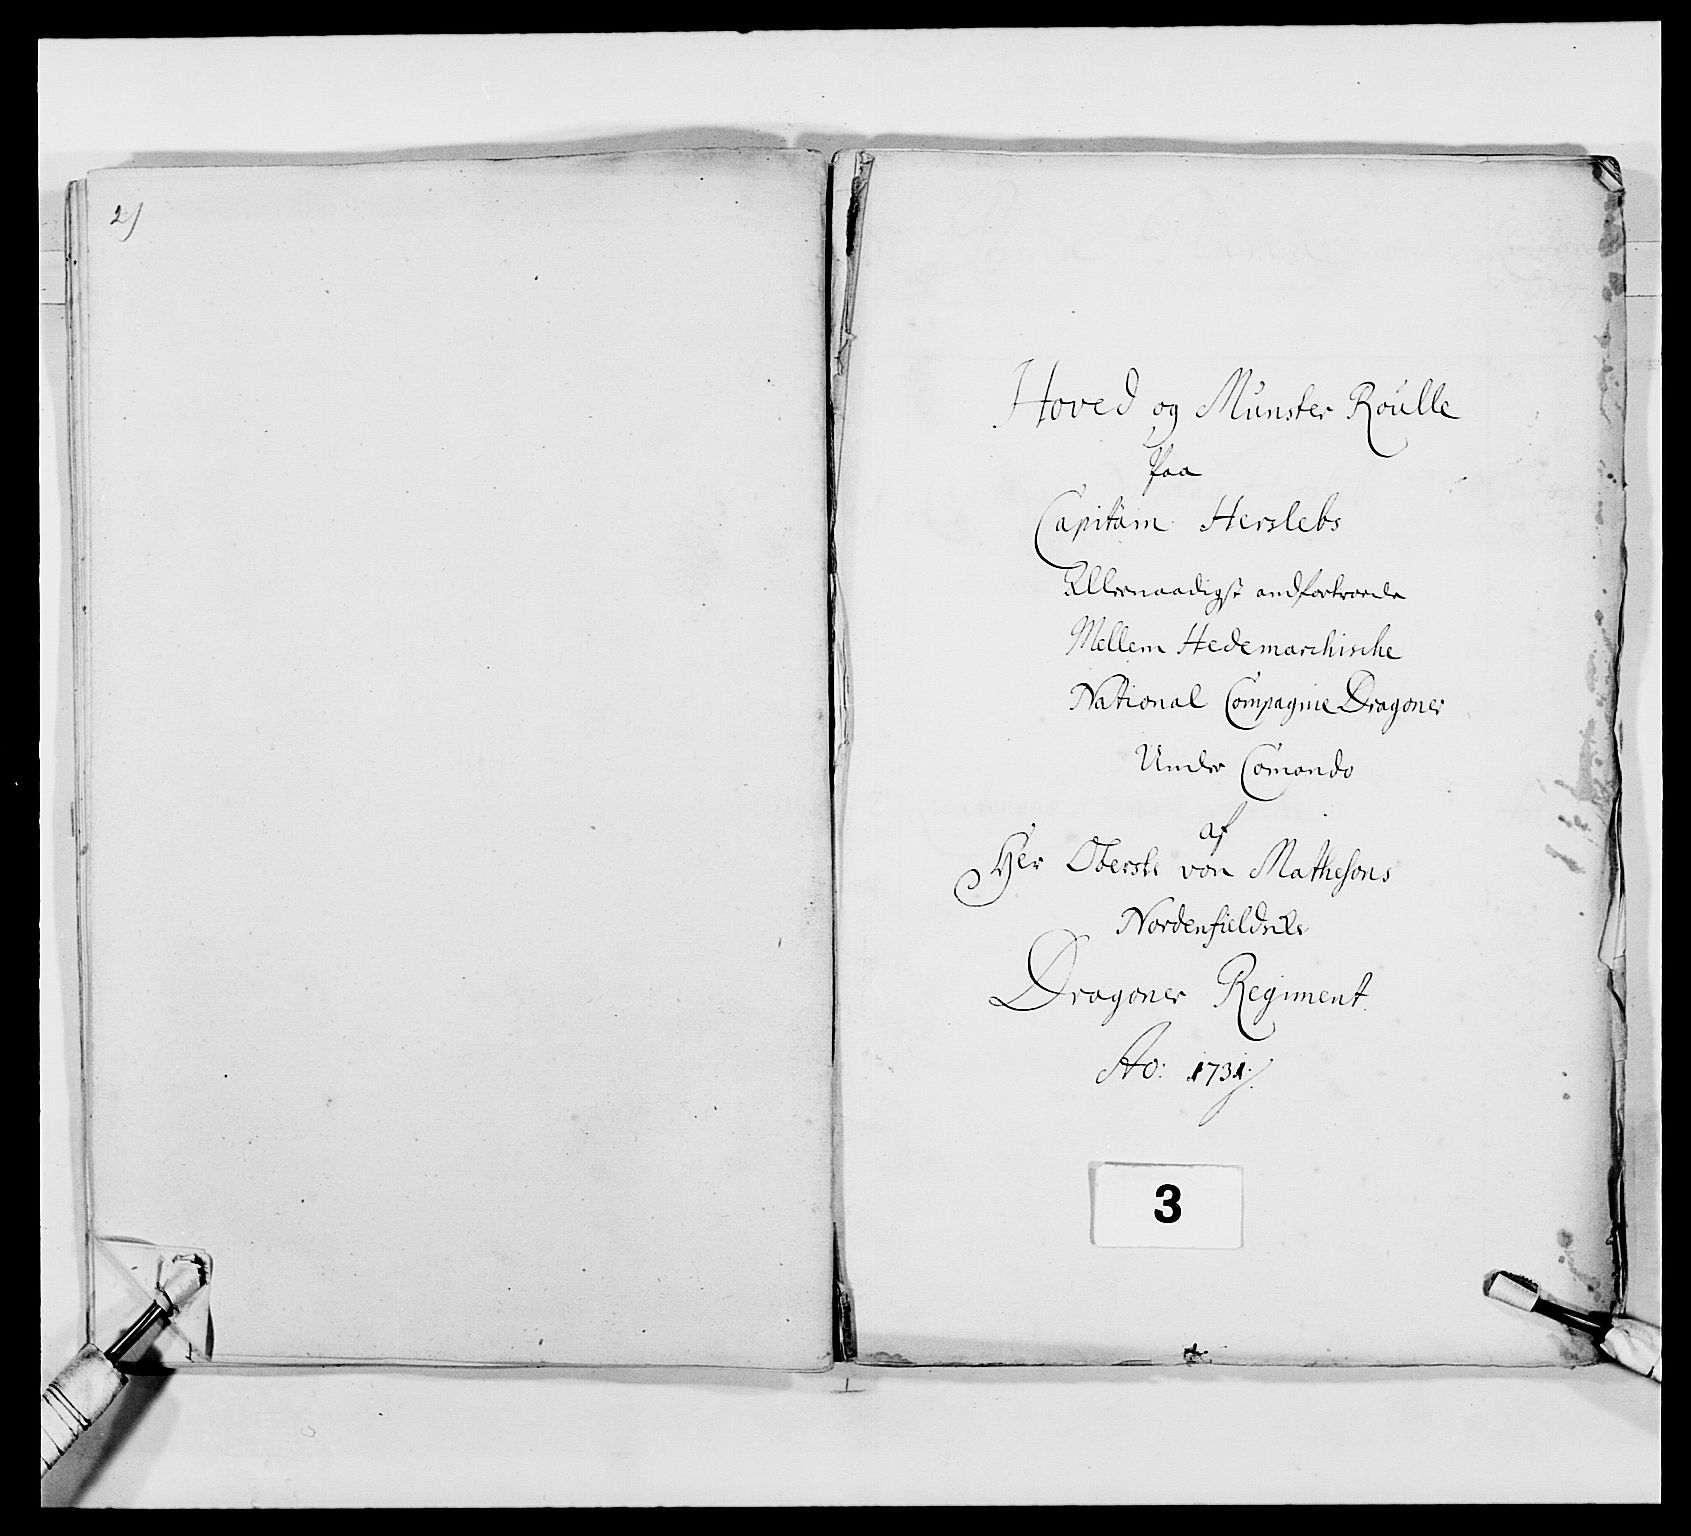 2)
Hoved og Munster Roulle
Paa
Capitain Herslebs
Allernaadigst andfortroede
Mellem Hedemarchische
National Compagnie Dragoner
Under Comando
af
Her Oberste von Mathesons
Nordenfieldske
Dragoner Regiment
Ao: 1731.
3